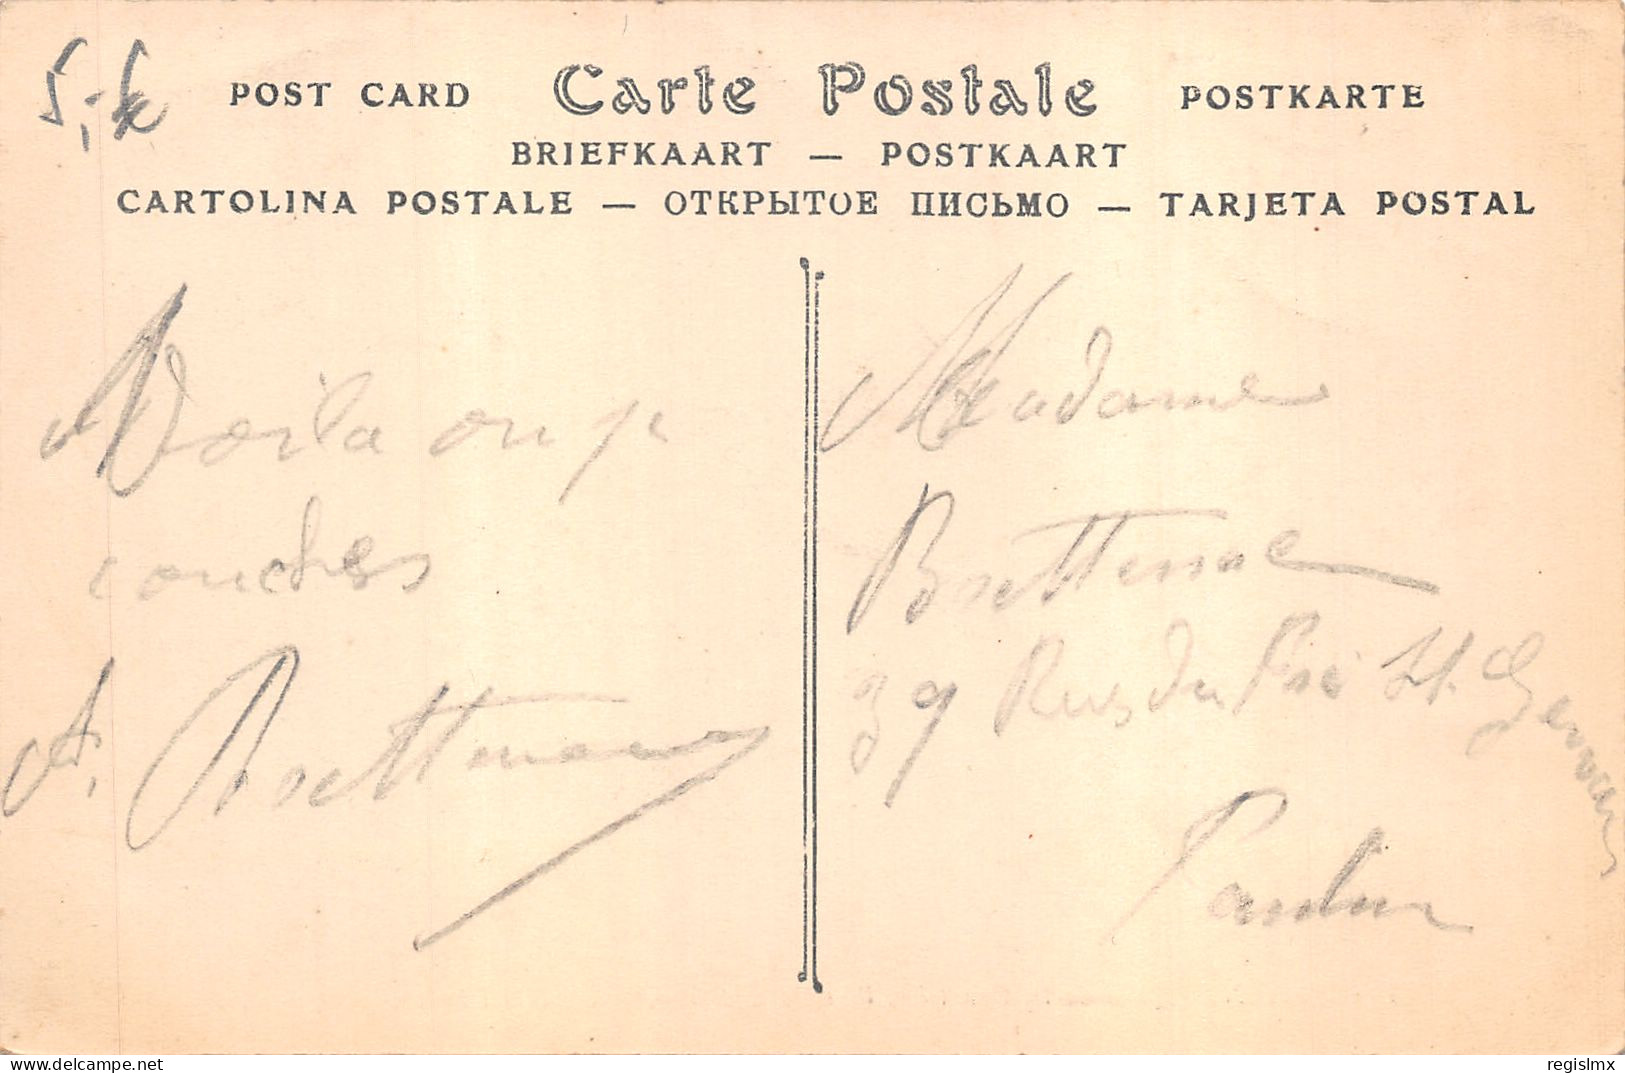 5,-€
POST CARD Carte Postale POSTKARTE
BRIEFKAART — POSTKAART
CARTOLINA POSTALE — ОТКРЫТОЕ ПИСЬМО — TARJETA POSTAL
Voila ou je
couches
A.
Madame
39 Rue du Pré St. Gervais
Pantin
delcampe.net
regislmx